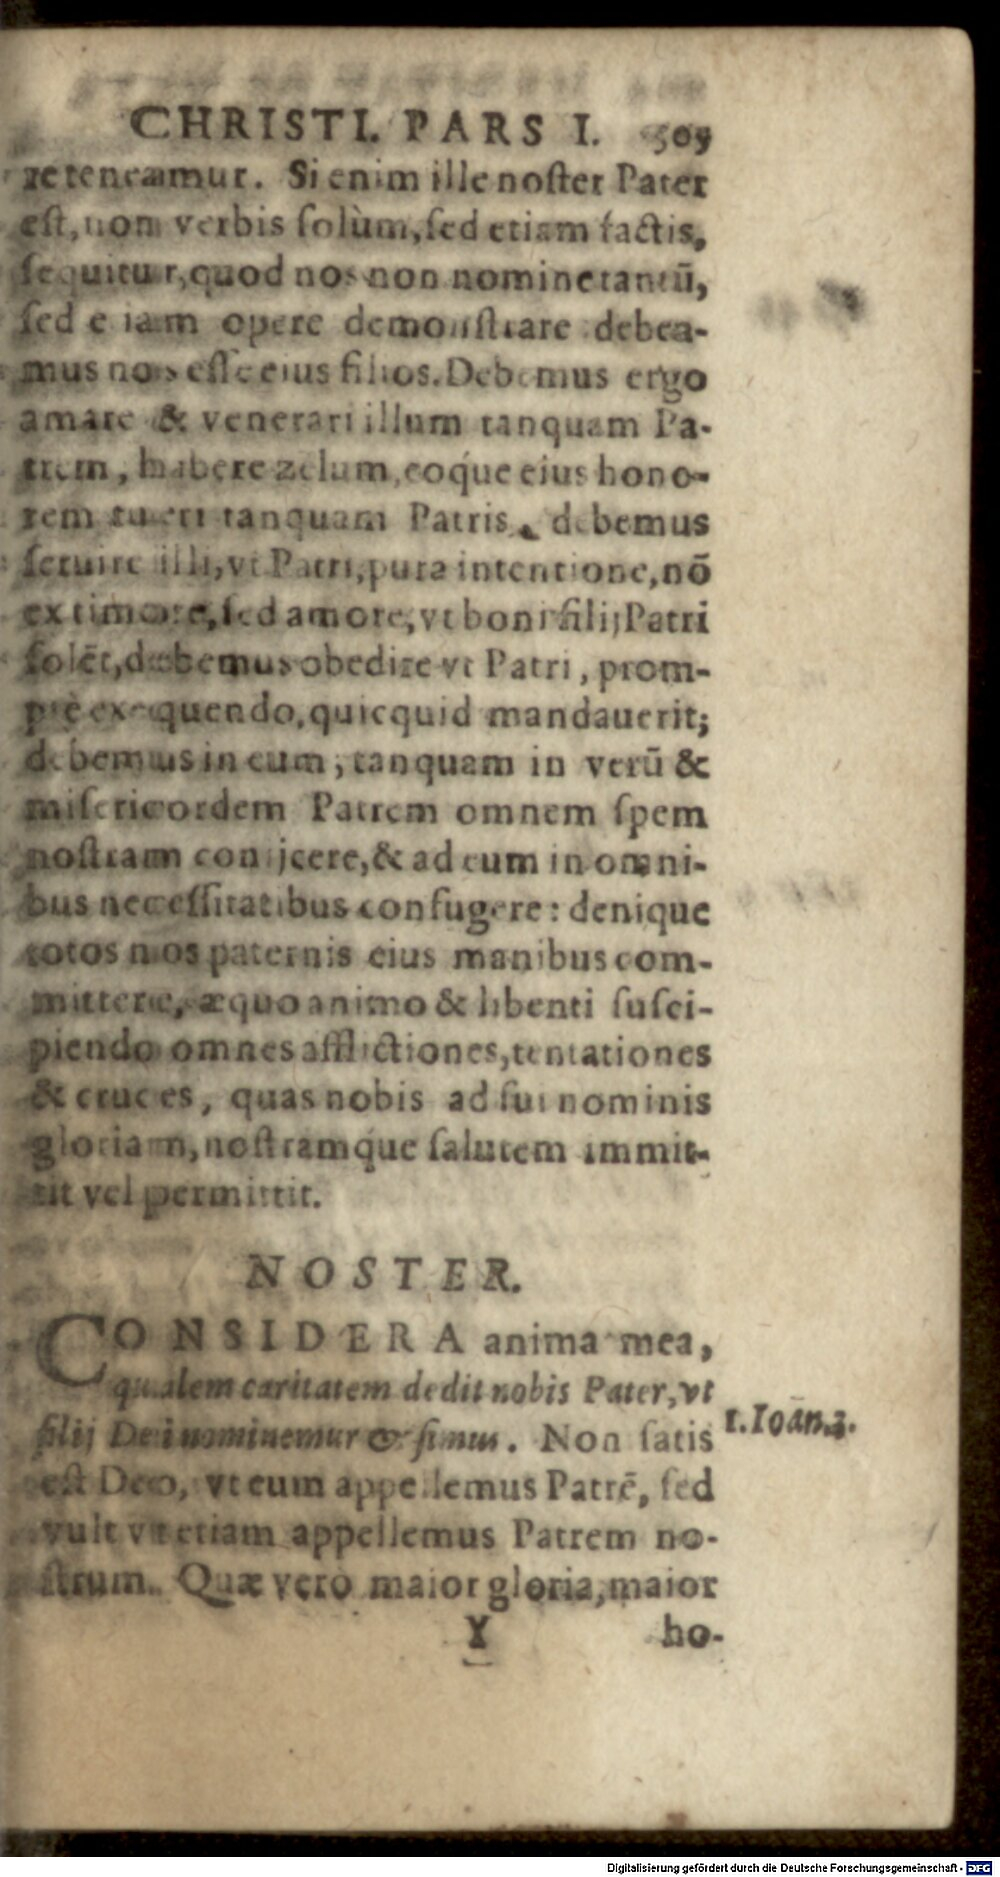 CHRISTI. PARS I. 505
re teneamur. Si enim ille noſter Pater
eſt, non verbis ſolùm, ſed etiam factis,
ſequitur, quod nos non nomine tantū,
ſed etiam opere demonſtrare debea-
mus nos eſſe eius filios. Debemus ergo
amare & venerari illum tanquam Pa-
trem, habere zelum, eoq́ue eius hono-
rem tueri tanquam Patris, debemus
ſeruire illi, vt Patri, pura intentione, nō
ex timore, ſed amore, vt boni filij Patri
ſolēt, debemus obedire vt Patri, prom-
ptè exequendo, quicquid mandauerit;
debemus in eum, tanquam in verū &
miſericordem Patrem omnem ſpem
noſtram conijcere, & ad eum in omni-
bus neceſſitatibus confugere: denique
totos nos paternis eius manibus com-
mittere, æquo animo & libenti ſuſci-
piendo omnes afflictiones, tentationes
& cruces, quas nobis ad ſui nominis
gloriam, noſtramq́ue ſalutem immit-
tit vel permittit.
NOSTER.
CONSIDERA anima mea,
qualem caritatem dedit nobis Pater, vt
filij Dei nominemur & ſimus. Non ſatis
1. Ioan. 3.
eſt Deo, vt eum appellemus Patrē, ſed
vult vt etiam appellemus Patrem no-
ſtrum. Quæ verò maior gloria, maior
Y ho-
Digitalisierung gefördert durch die Deutsche Forschungsgemeinschaft - DFG